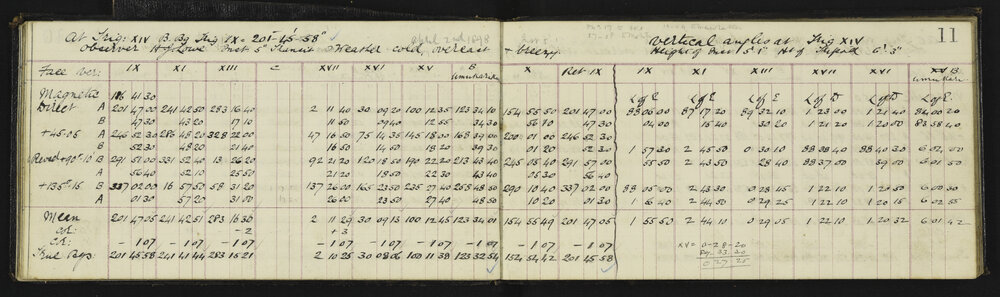 At Trig: XIV B. Bg Trig IX = 201-45-58" April 2nd 1898 Vertical angles at Trig XIV 11
Observer H.J. Lowe Inst 5" Transit Weather cold, overcast + breezy Height of Inst 5' 1" Ht of Tripod 6' 3"
Face ver: IX XI XIII = XVII XVI XV B X Ret. IX IX XI XIII XVII XVI XV B
Magnetic 186 41.30 L of E L of E L of E L of D L of D L of E
Direct A 201 47 00 241 42 50 283 16 40 2 11 40 30 09 20 100 12 35 123 34 10 154 55 50 201 47 00 88 06 00 87 17 20 89 32 10 1 21 20 1 21 40 84 00 20
B 47 30 43 20 17 10 11 50 09 40 12 55 34 30 56 10 47 30 04 00 15 40 30 20 1 21 20 1 20 00 83 58 40
+45-05 A 246 52 30 286 48 20 328 22 00 47 16 50 75 14 35 145 18 00 168 39 00 200 01 00 246 52 30
B 52 30 48 20 21 40 16 50 14 50 18 20 39 30 01 20 52 30 1 57 30 2 45 50 0 30 10 88 38 40 88 40 30 6 02 00
Revsd +90° 10' B 291 57 00 331 52 40 13 26 20 92 21 20 120 18 50 190 22 20 213 43 40 245 05 40 291 57 00 55 50 2 43 50 28 40 88 37 00 39 00 6 01 50
A 56 40 52 10 25 50 21 20 18 50 22 30 43 40 05 30 56 40
+135° 15 B 337 02 00 16 57 50 58 31 20 137 26 00 165 23 50 235 27 40 258 48 50 290 10 40 337 02 00 88 05 00 2 43 30 0 28 45 1 22 10 1 20 50 6 00 30
A 01 30 57 20 31 00 26 00 23 50 27 40 48 50 10 20 01 30 1 56 40 2 44 50 0 29 25 1 22 10 1 20 15 6 02 55
Mean 201 47 05 241 42 51 283 16 30 2 11 29 30 09 13 100 12 45 123 34 01 154 55 49 201 47 05 1 55 50 2 44 10 0 29 05 1 22 10 1 20 32 6 01 42
Cor. -2 +3
Cor: - 1 07 - 1 07 - 1 07 - 1 07 - 1 07 - 1 07 - 1 07 - 1 07 - 1 07 XV = 0-28-20
True Bgs: 201 45 58 241 41 44 283 15 21 2 10 25 30 08 06 100 11 38 123 32 54 154 54 42 201 45 58
0 27 25